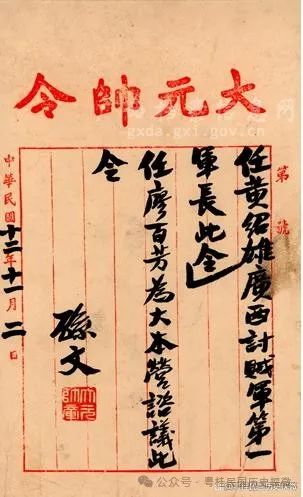 大元帥令
第 號
任黃紹雄廣西討賊軍第一
軍長此令
任廖百芳為大本營諮議此
令
孫文
大元帥章
中華民國十二年十一月二日
gxda.gxi.gov.cn
公众号·粤桂民国历史探微